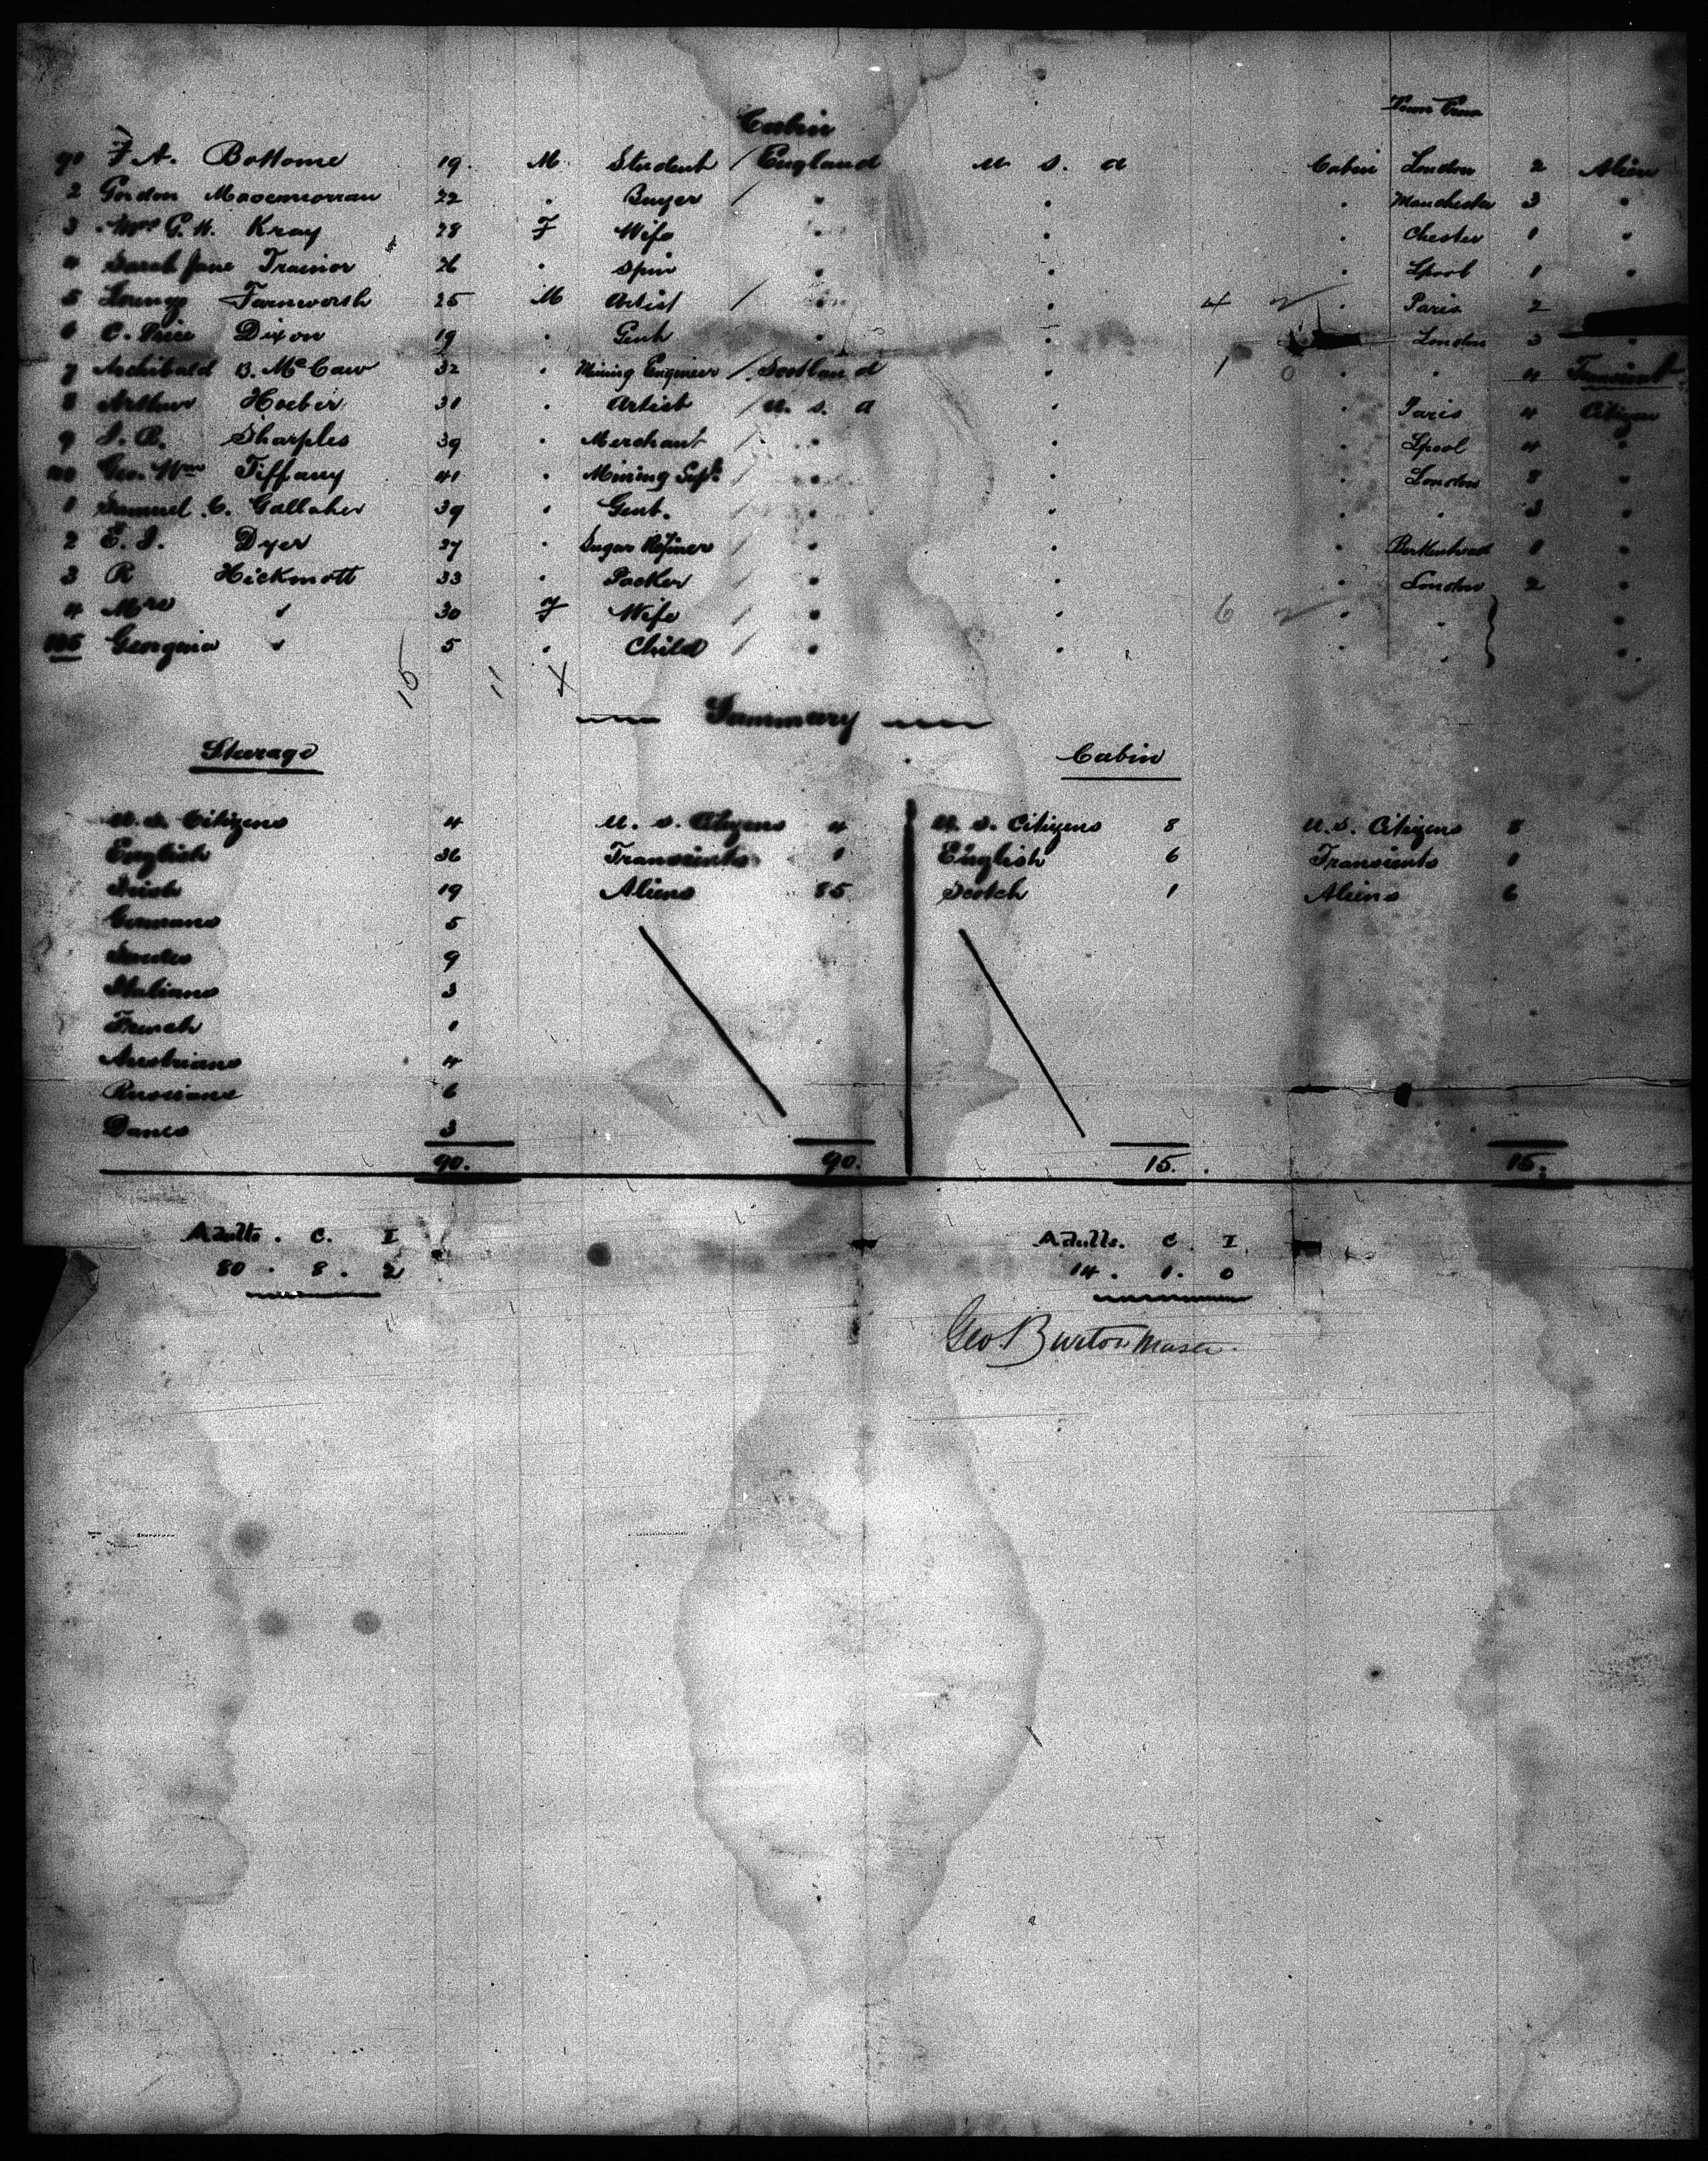 Cabin
Town From
91 F A. Bottome 19. M. Student / England U. S. A Cabin London 2 Alien
2 Gordon 22 " Buyer / " " " Manchester 3 "
3 Mrs G. H. Kray 28 F Wife " " " Chester 1 "
4 Sarah Jane Trainor 26 " Spin " " " Lpool 1 "
5 Farnworth 25 M Artist / " " 4 2 " Paris 2
6 C. Price Dixon 19 " Gent " " London 3 "
7 Archibald B. McCaw 32 " Mining Engineer / Scotland " 1 0 " " 4 Transient
8 Arthur Hoeber 31 " Artist / U. S. A " " Paris 4 Citizen
9 J. B. Sharples 39 " Merchant / " " " Lpool 4 "
100 Geo. Wm Tiffany 41 " Mining Supt. / " " " London 8 "
1 Samuel C. Gallaher 39 " Gent. / " " " " 3 "
2 E. J. Dyer 27 " Sugar Refiner / " " " Birkenhead 1 "
3 R Hickmott 33 " Packer / " " " London 2 "
4 Mrs " 30 F Wife / " 6 2 " " "
105 Georgina " 5 " Child / " " " " "
15 11 X
Summary
Steerage Cabin
U. S. Citizens 4 U. S. Citizens 4 U. S. Citizens 8 U. S. Citizens 8
English 36 Transients 1 English 6 Transients 1
Irish 19 Aliens 85 Scotch 1 Aliens 6
Germans 5
Swedes 9
Italians 3
French 1
Austrians 4
Russians 6
Danes 3
90. 90. 15. 15.
Adults . C. I Adults. C. I.
80 . 8 . 2 14 . 1 . 0
Geo. Burton Master.